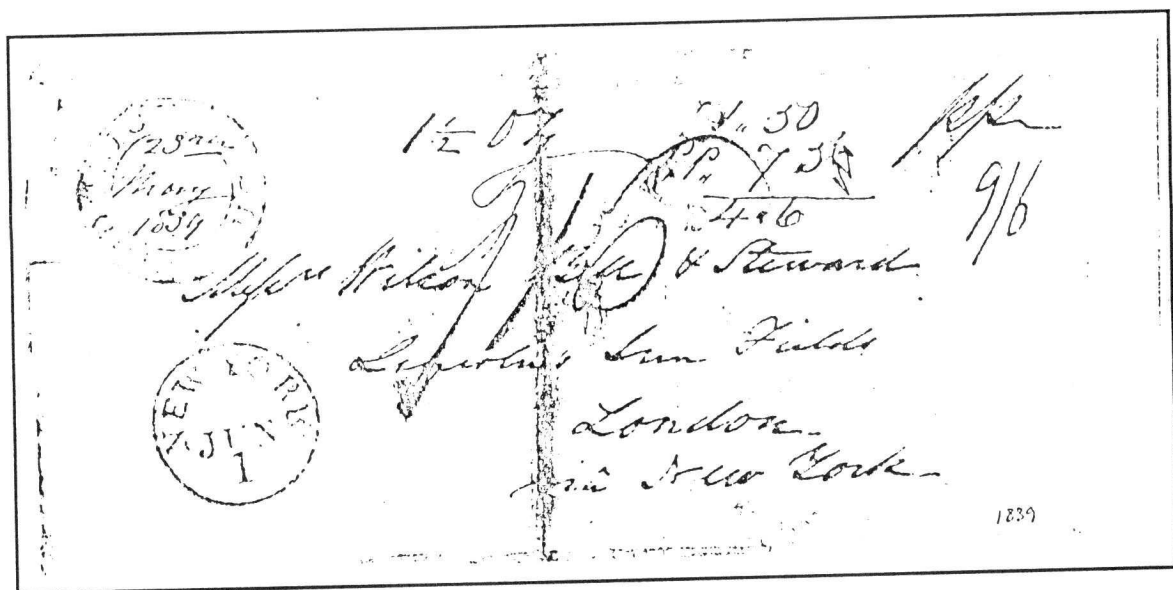 23rd
May
1839
1½ Oz
50
4.6
pp
9/6
Messrs Wilson & Steward
Lincoln's Inn Fields
London
via New York
NEW YORK
JUN
1
1839